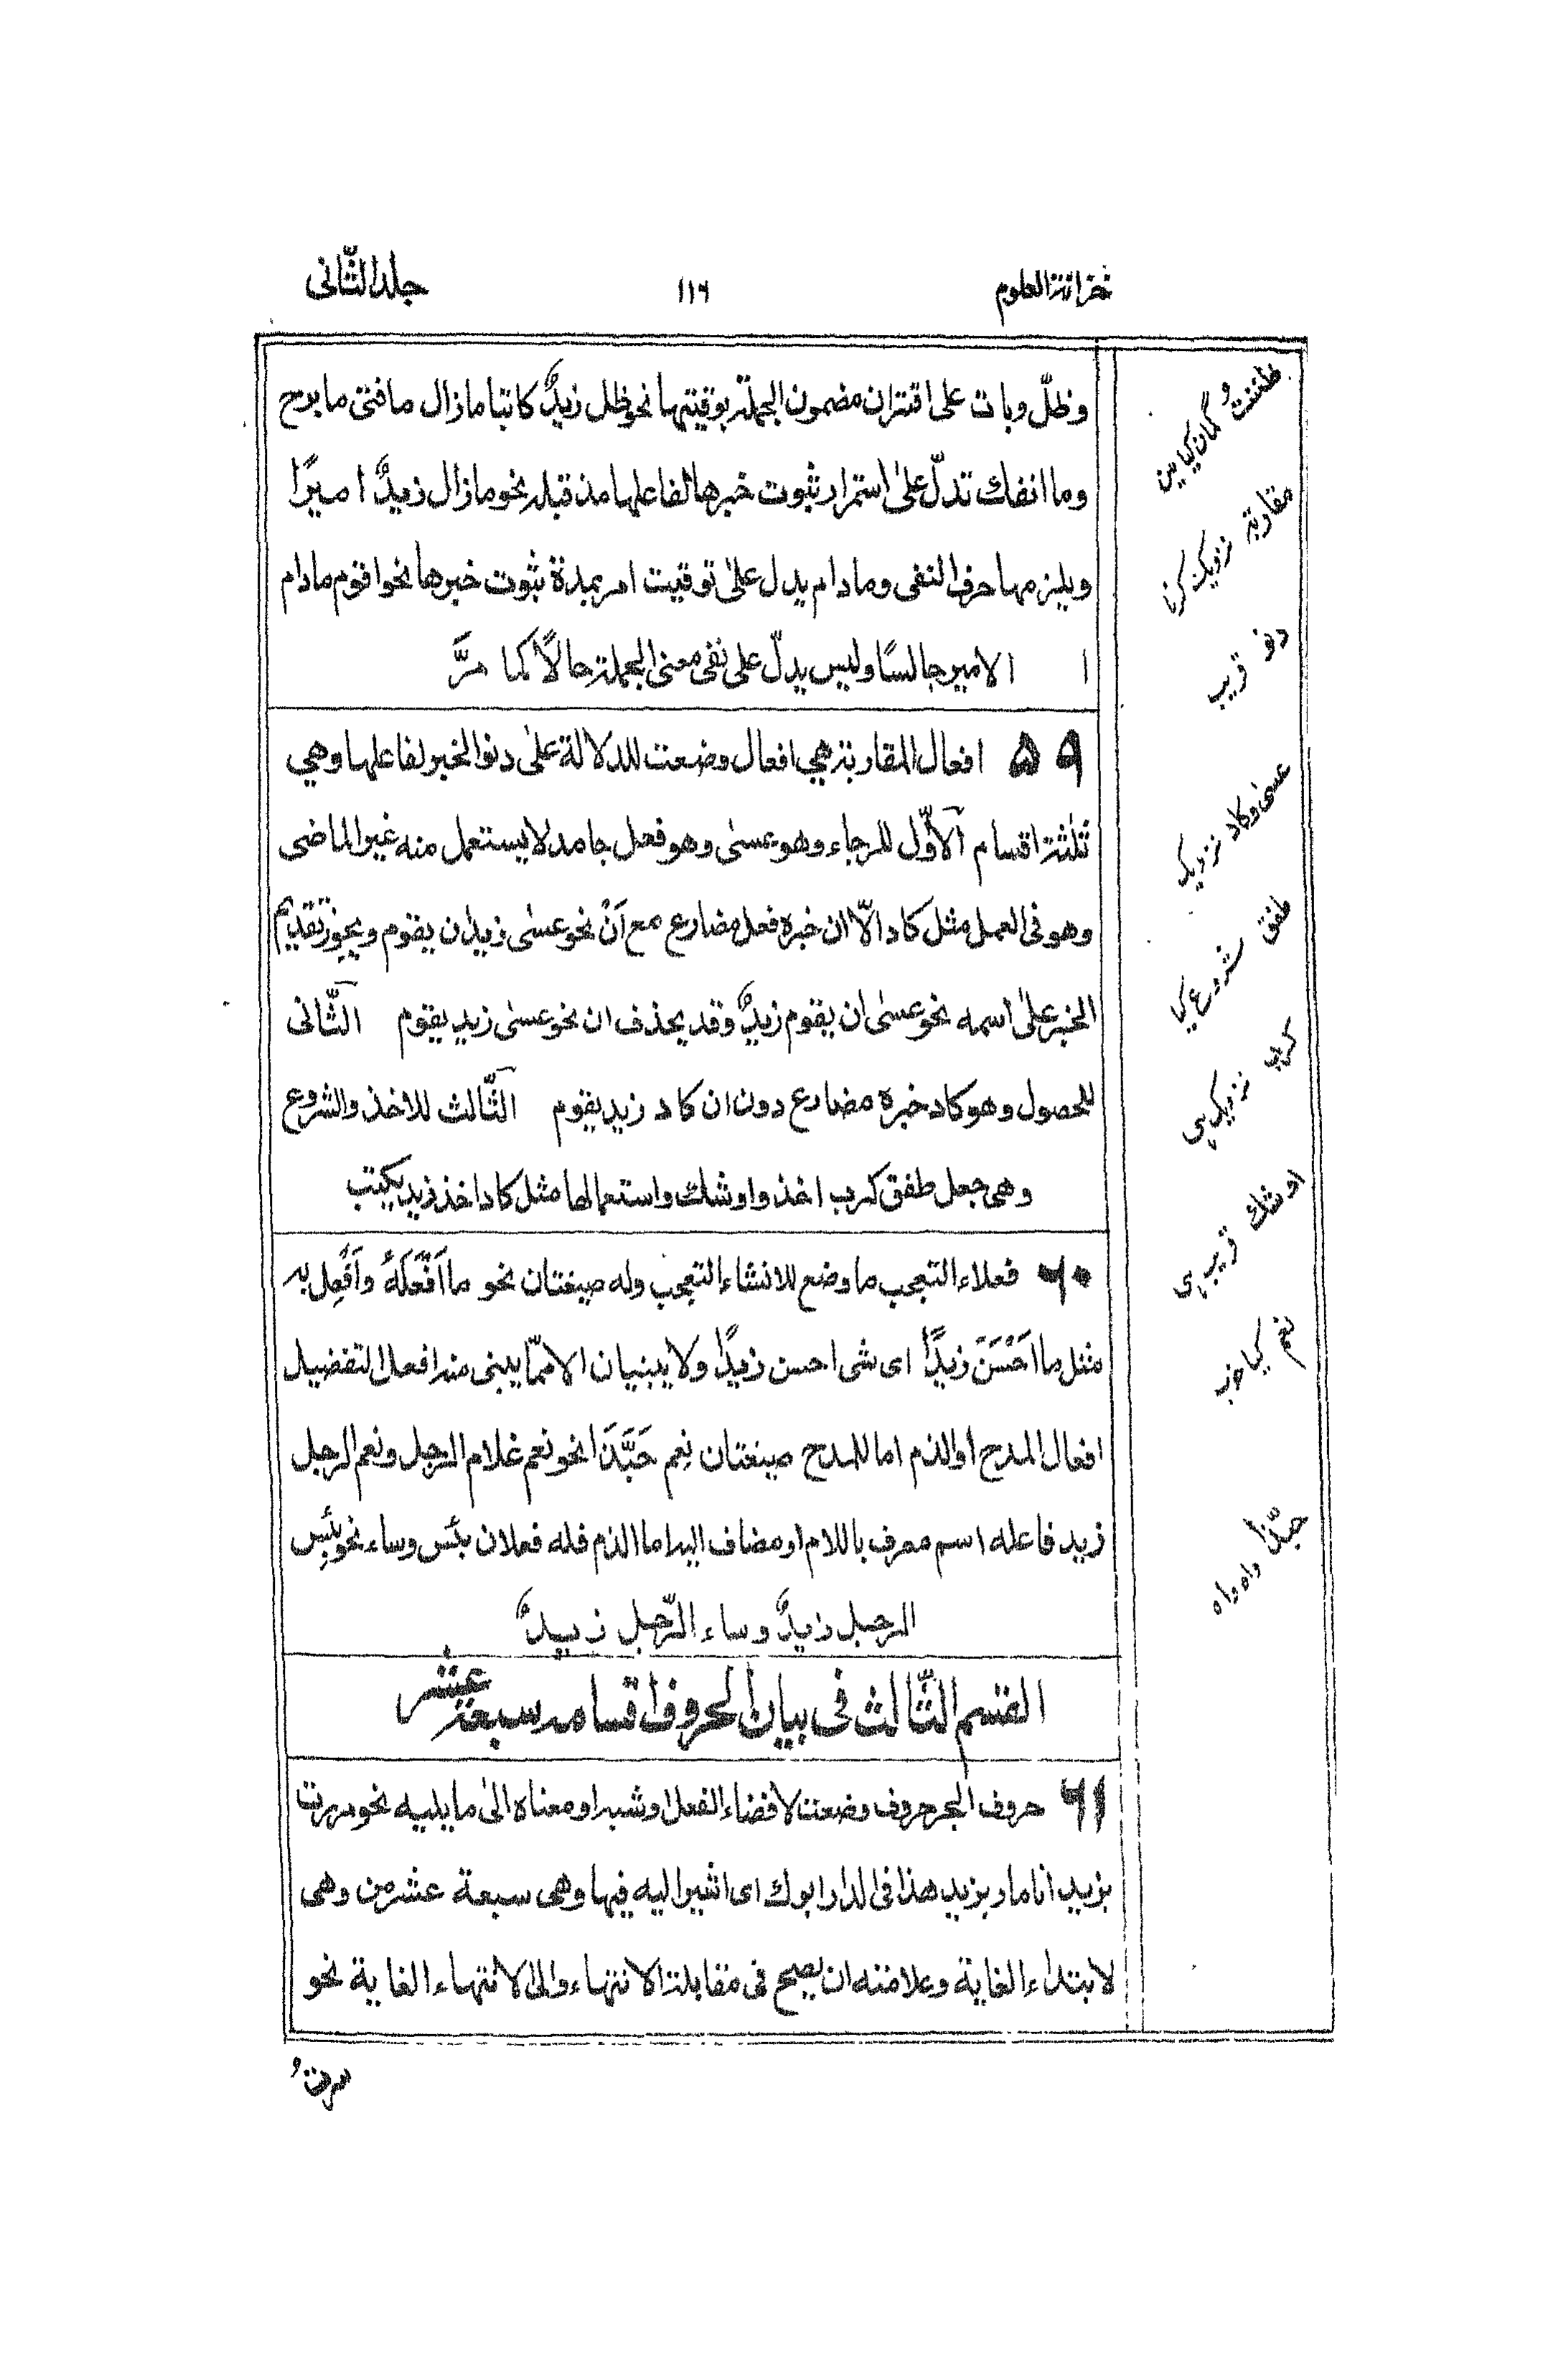 خزانة العلوم
١١٦
جلد الثّانی
وظلّ وبات علی اقتران مضمون الجملة بوقتیتها نحو ظل زیدٌ کاتبا مازال مافتی مابرح
وما انفك تدلّ علیٰ استمرار ثبوت خبرها لفاعلها مذ قبله نحو مازال زیدٌ امیرًا
ویلزمها حرف النفی ومادام یدل علیٰ توقیت امر بمدة ثبوت خبرها نحو اقوم مادام
الامیر جالسًا ولیس یدلّ علی نفی معنی الجملة حالًا کما مرَّ
٥٩ افعال المقاربة هی افعال وضعت للدلالة علیٰ دنو الخبر لفاعلها وهی
ثلٰثة اقسام الاوّل للرجاء وهو عسیٰ وهو فعل جامد لا یستعمل منه غیر الماضی
وهو فی العمل مثل کاد الّا ان خبره فعل مضارع مع اَنْ نحو عسیٰ زید ان یقوم ویجوز تقدیم
الخبر علیٰ اسمه نحو عسیٰ ان یقوم زیدٌ وقد یحذف ان نحو عسیٰ زید یقوم الثّانی
للحصول وهو کاد خبره مضارع دون ان کاد زید یقوم الثّالث للاخذ والشروع
وهی جعل طفق کرب اخذ واوشك واستعمالها مثل کاد اخذ زید یکتب
٦٠ فعلاء التعجب ما وضع للانشاء التعجب وله صیغتان نحو ما اَفْعَلَهٗ واَفْعِل به
مثل ما اَحْسَنَ زیدًا ای شی احسن زیدًا ولا یبنیان الا ممّا یبنی منه افعل التفضیل
افعال المدح اوالذم اما للمدح صیغتان نِعم حَبَّذَا نحو نعم غلام الرجل ونعم الرجل
زید فاعله اسم معرف باللام او مضاف الیه اما الذم فله فعلان بئس وساء نحو بئِس
الرجل زیدٌ وساء الرّجل زیدٌ
القسم الثّالث فی بیان الحروف اقسامه سبعة عشر
٦١ حروف الجر حروف وضعت لافضاء الفعل او شبه او معناه الیٰ ما یلیه نحو مررت
بزید انا مار بزید هذا فی الدار ابوك ای اشیر الیه فیها وهی سبعة عشر من وهی
لابتداء الغایة وعلامته ان یصح فی مقابلته الانتهاء والیٰ لانتهاء الغایة نحو
سرتُ
ظننتُ گمان کیا مین
مقاربة نزدیک کرنا
دنو قریب
عسیٰ وکاد نزدیک
طفق شروع کیا
کرب نزدیک ہی
اوشك قریب ہی
نعم کیا خوب
حبّذا واہ واہ